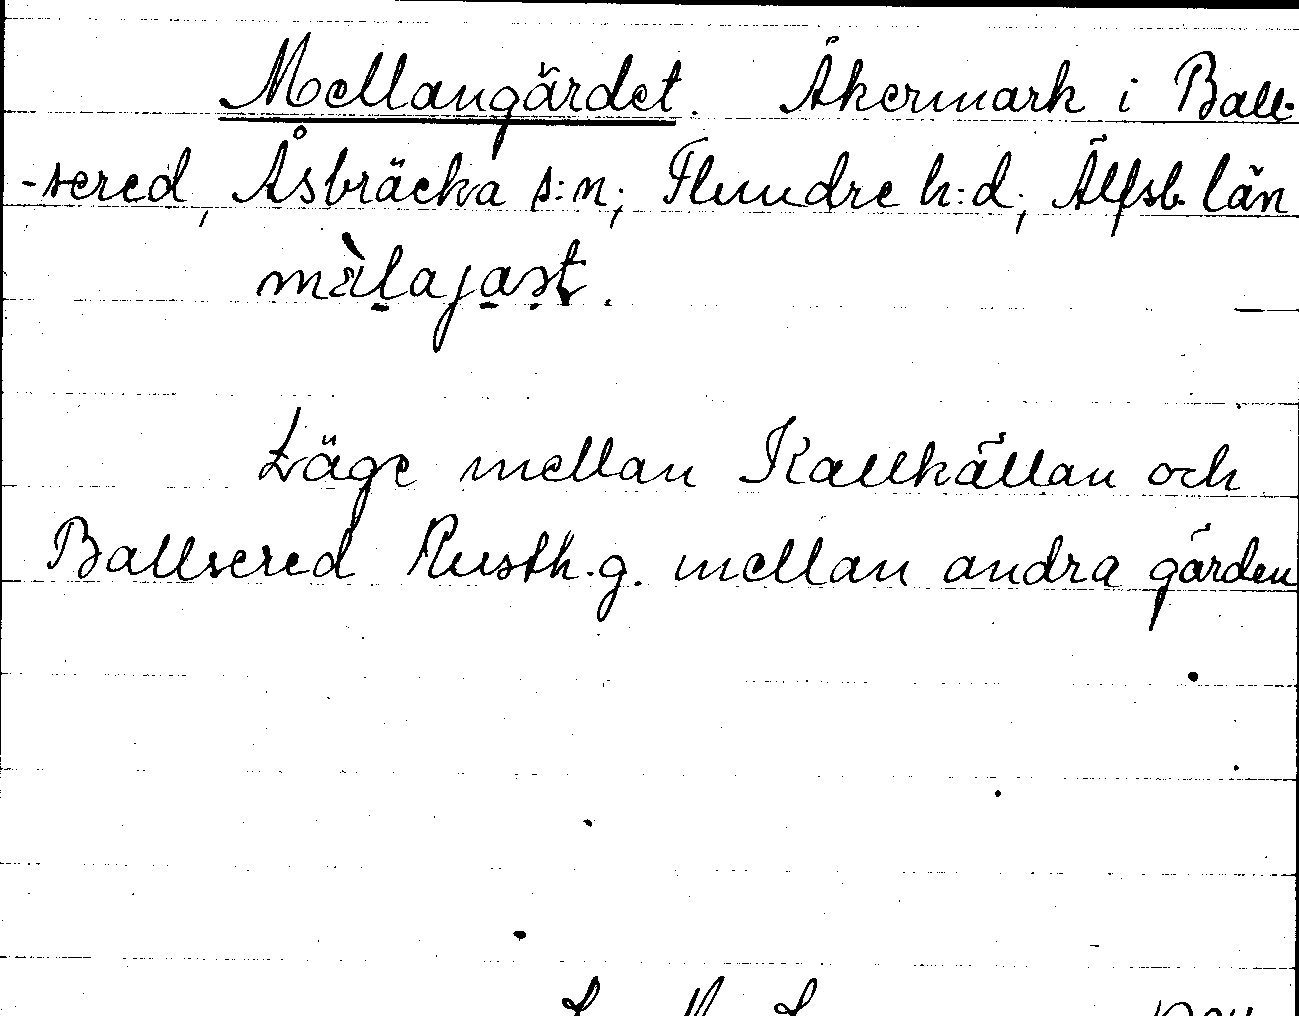 Mellangärdet. Åkermark i Ball-
-sered, Åsbräcka s:n; Flundre h:d; Älfsb. län
mälajast.
Läge mellan Kallkällan och
Ballsered Rusth.g. mellan andra gärden